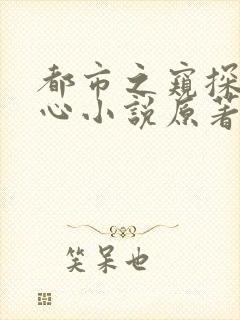 都市之窥探
心小说原著
笑呆也